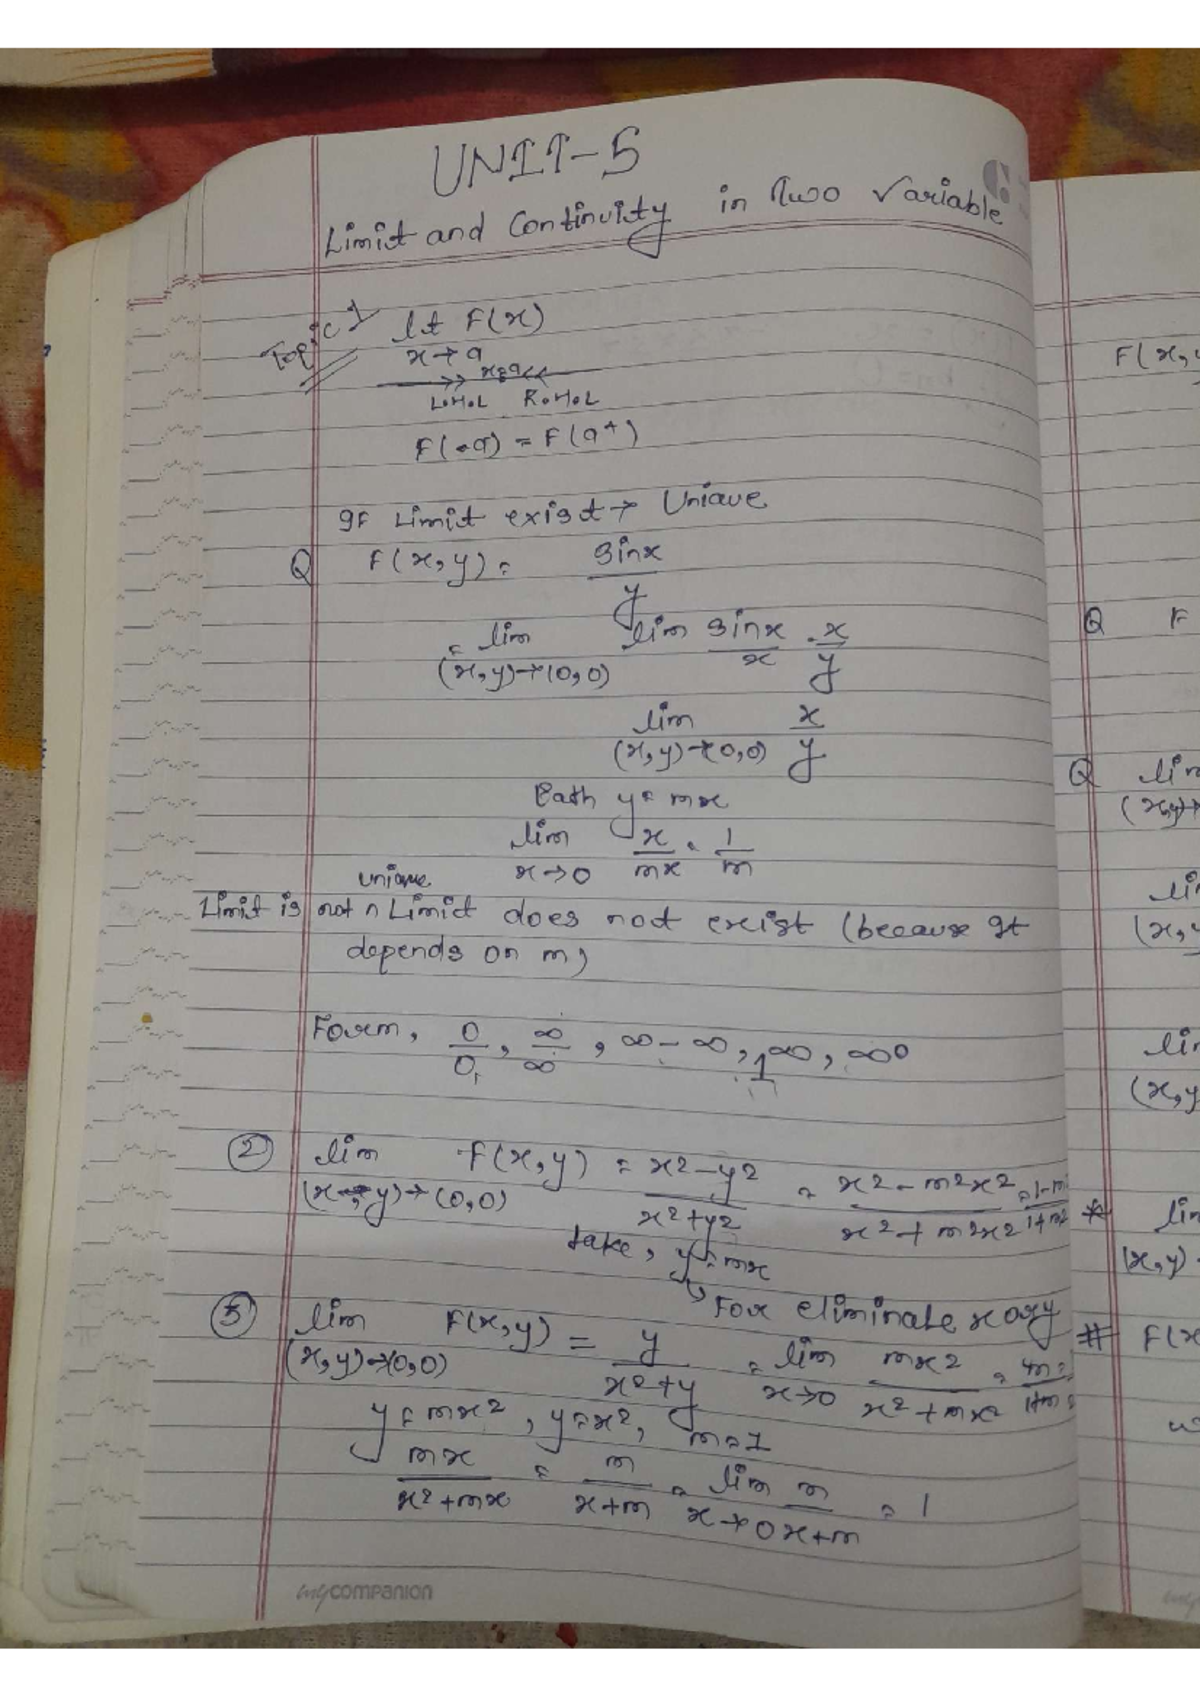 UNIT-5
Limit and Continuity in Two Variable
Topic 1
lt F(x)
x→a
x=a
L.H.L R.H.L
F(-a) = F(a+)
If Limit exist → Unique
Q F(x,y) = sinx/y
= lim (x,y)→(0,0) lim sinx/x · x/y
lim (x,y)→(0,0) x/y
Path y = mx
lim x→0 x/mx = 1/m
unique
Limit is not ∧ Limit does not exist (because It
depends on m)
Form, 0/0, ∞/∞, ∞-∞, 1^∞, ∞^0
② lim (x,y)→(0,0) F(x,y) = x²-y²/x²+y² = x²-m²x²/x²+m²x² = 1-m/1+m²
take, y=mx
↳ For eliminate x or y
③ lim (x,y)→(0,0) F(x,y) = y/x²+y = lim x→0 mx²/x²+mx² =
y=mx², y=x², m=1
mx/x²+mx = m/x+m = lim x→0 m/x+m = 1
mycompanion
F(x,y
Q F
Q lim
(x,y)→
lim
(x,y
lim
(x,y
* lim
(x,y)
# F(x